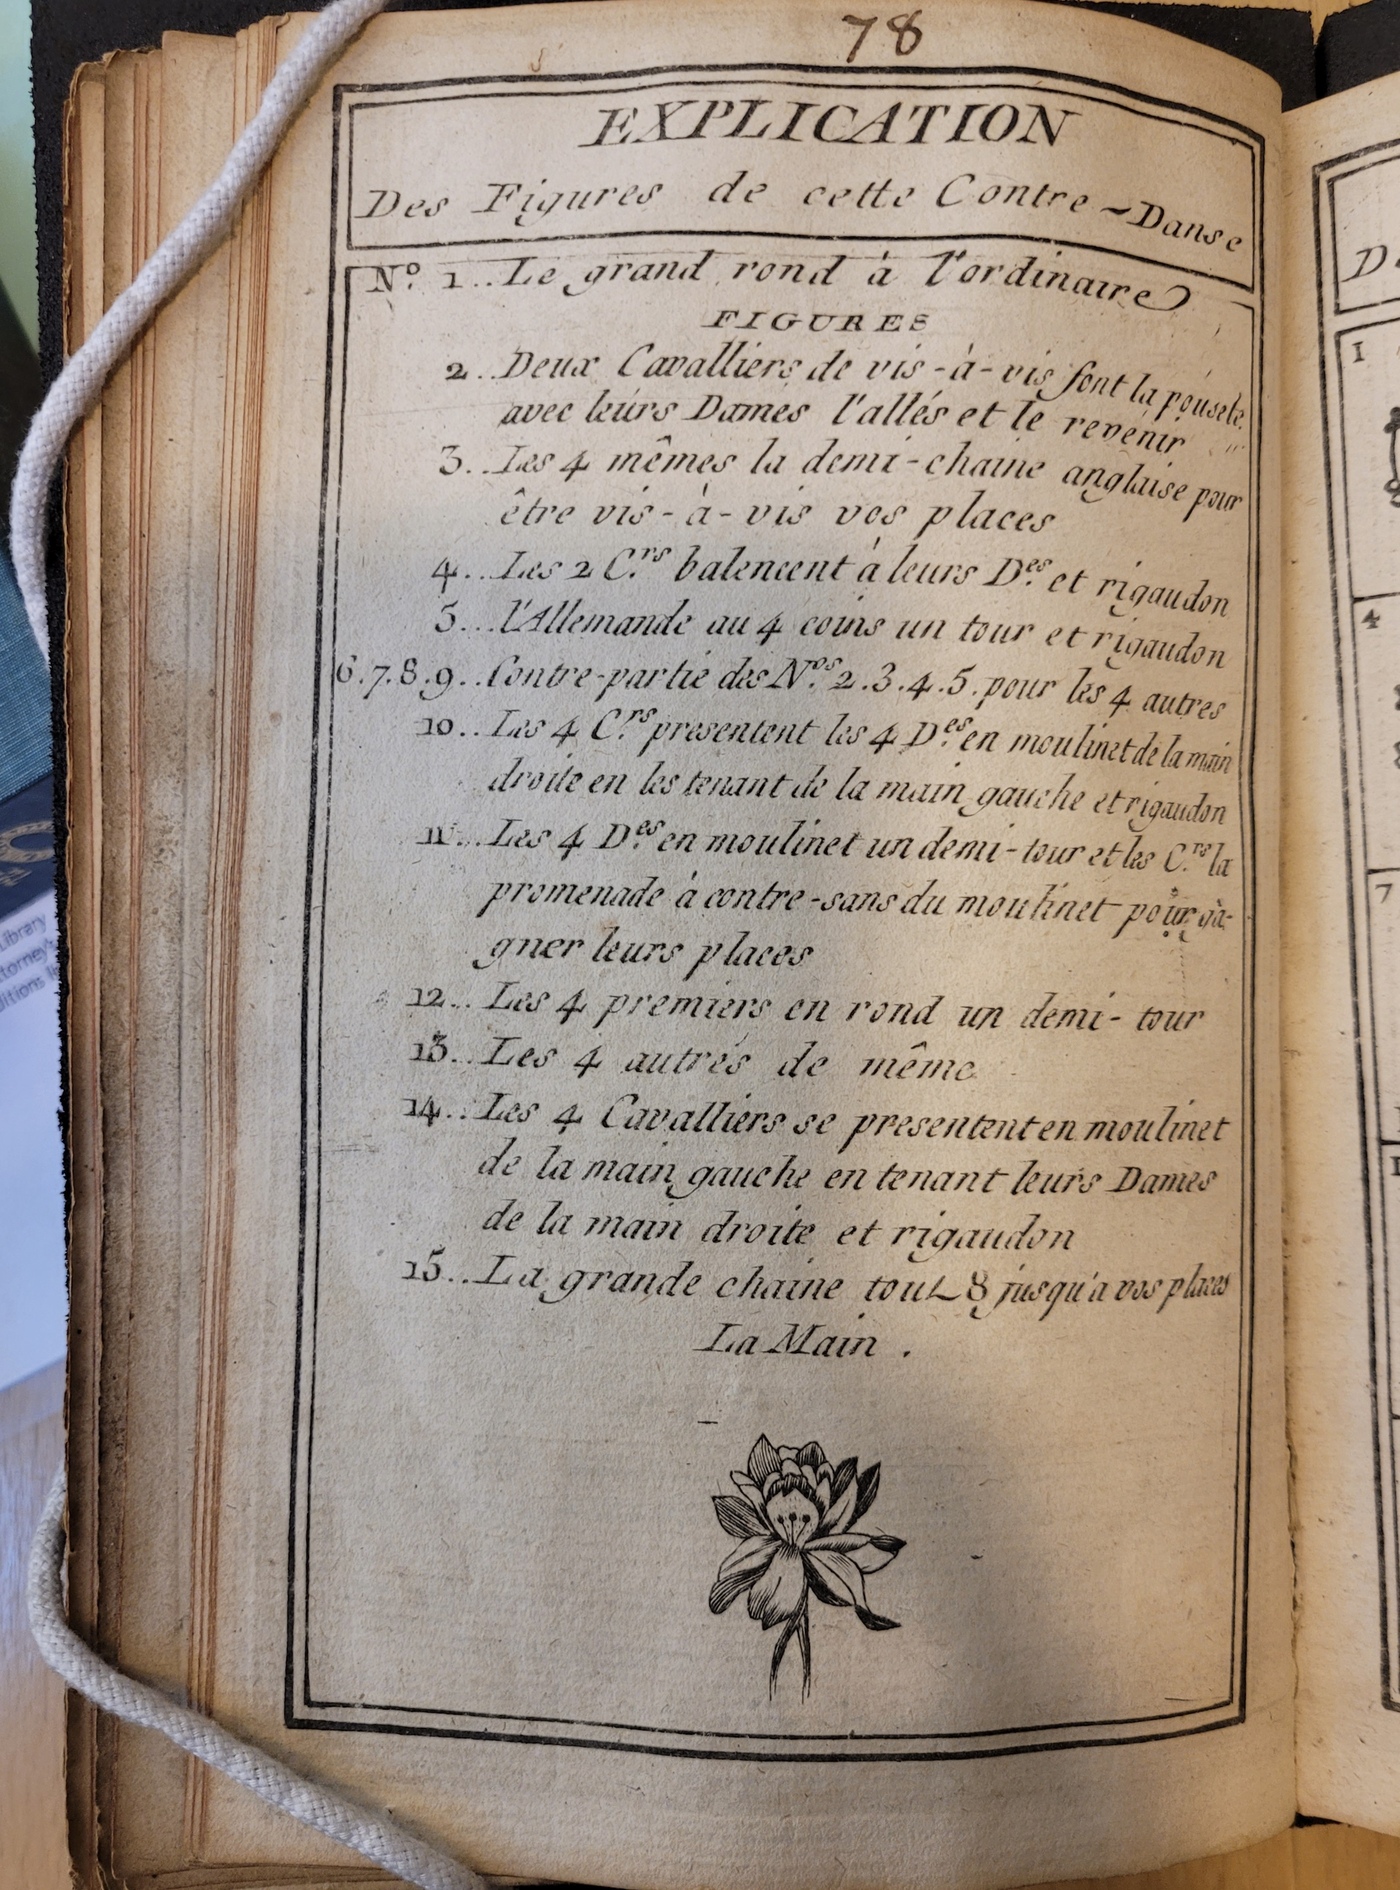 78
EXPLICATION
Des Figures de cette Contre-Danse
N.º 1.. Le grand rond à l'ordinaire
FIGURES
2.. Deux Cavalliers de vis-à-vis font la pousete
avec leurs Dames l'allés et le revenir
3.. Les 4 mêmes la demi-chaine anglaise pour
être vis-à-vis vos places
4... Les 2 C.rs balencent à leurs D.es et rigaudon
5... l'Allemande au 4 coins un tour et rigaudon
6.7.8.9.. Contre-partie des N.os 2.3.4.5. pour les 4 autres
10.. Les 4 C.rs presentent les 4 D.es en moulinet de la main
droite en les tenant de la main gauche et rigaudon
11... Les 4 D.es en moulinet un demi-tour et les C.rs la
promenade à contre-sans du moulinet pour ga-
gner leurs places
12... Les 4 premiers en rond un demi-tour
13.. Les 4 autres de même
14... Les 4 Cavalliers se presentent en moulinet
de la main gauche en tenant leurs Dames
de la main droite et rigaudon
15... La grande chaine tout 8 jusqu'a vos places
La Main .
D
1
4
7
Library